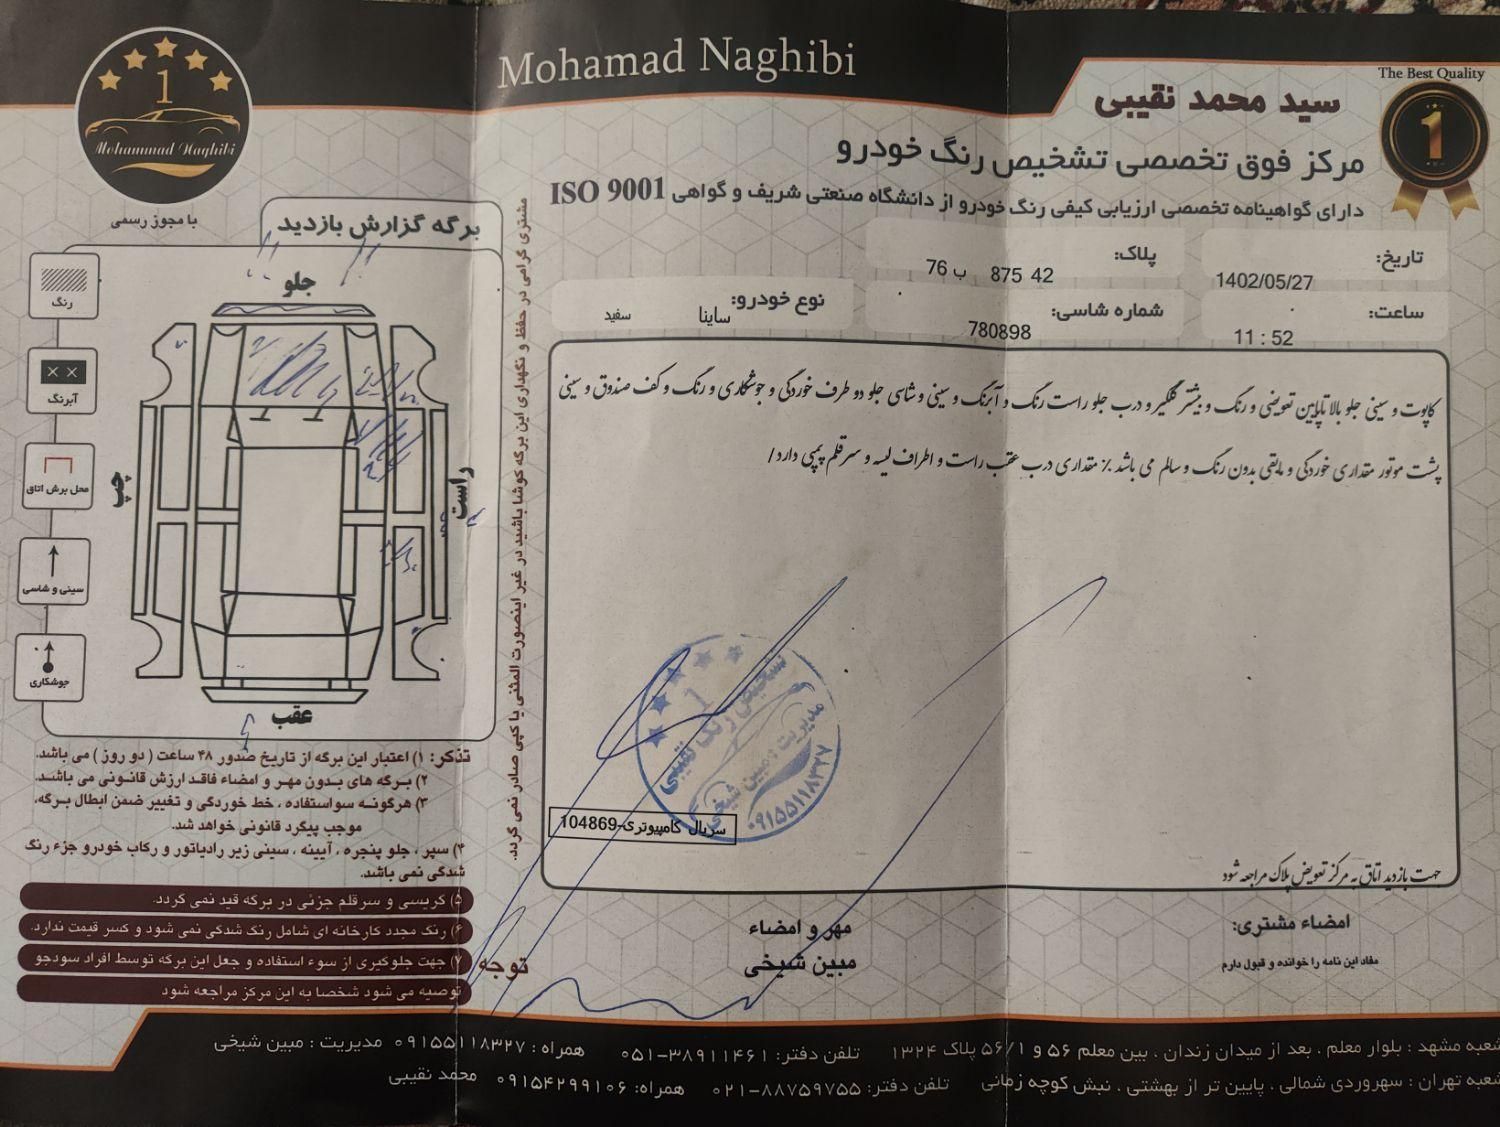 Mohamad Naghibi
The Best Quality
1
سید محمد نقیبی
مرکز فوق تخصصی تشخیص رنگ خودرو
دارای گواهینامه تخصصی ارزیابی کیفی رنگ خودرو از دانشگاه صنعتی شریف و گواهی ISO 9001
1
Mohammad Naghibi
با مجوز رسمی
تاریخ: 1402/05/27
پلاک: 42 875 ب 76
ساعت: 11 : 52
شماره شاسی: 780898
نوع خودرو: ساینا سفید
کاپوت و سینی جلو بالا تا پایین تعویضی و رنگ و بیشتر گلگیر و درب جلو راست رنگ و آبرنگ و سینی و شاسی جلو دو طرف خوردگی و جوشکاری و رنگ و کف صندوق و سینی
پشت موتور مقداری خوردگی و مابقی بدون رنگ و سالم می باشد ٪ مقداری درب عقب راست و اطراف لیسه و سرقلم پمپی دارد/
جهت بازدید اتاق به مرکز تعویض پلاک مراجعه شود
سریال کامپیوتری-104869
1
تشخیص رنگ نقیبی
مدیریت : مبین شیخی
۰۹۱۵۵۱۱۸۳۲۷
امضاء مشتری:
مفاد این نامه را خوانده و قبول دارم
مهر و امضاء
مبین شیخی
مشتری گرامی در حفظ و نگهداری این برگه کوشا باشید در غیر اینصورت المثنی یا کپی صادر نمی گردد.
برگه گزارش بازدید
جلو
چپ
راست
عقب
رنگ
آبرنگ
محل برش اتاق
سینی و شاسی
جوشکاری
تذکر: ۱) اعتبار این برگه از تاریخ صدور ۴۸ ساعت ( دو روز ) می باشد.
۲) برگه های بدون مهر و امضاء فاقد ارزش قانونی می باشد.
۳) هرگونه سواستفاده ، خط خوردگی و تغییر ضمن ابطال برگه،
موجب پیگرد قانونی خواهد شد.
۴) سپر ، جلو پنجره ، آیینه ، سینی زیر رادیاتور و رکاب خودرو جزء رنگ
شدگی نمی باشد.
۵) کریسی و سرقلم جزئی در برگه قید نمی گردد.
۶) رنگ مجدد کارخانه ای شامل رنگ شدگی نمی شود و کسر قیمت ندارد.
۷) جهت جلوگیری از سوء استفاده و جعل این برگه توسط افراد سودجو
توصیه می شود شخصا به این مرکز مراجعه شود
توجه
شعبه مشهد : بلوار معلم ، بعد از میدان زندان ، بین معلم ۵۶ و ۵۶/۱ پلاک ۱۳۲۴ تلفن دفتر: ۰۵۱-۳۸۹۱۱۴۶۱ همراه : ۰۹۱۵۵۱۱۸۳۲۷ مدیریت : مبین شیخی
شعبه تهران : سهروردی شمالی ، پایین تر از بهشتی ، نبش کوچه زمانی تلفن دفتر: ۰۲۱-۸۸۷۵۹۷۵۵ همراه: ۰۹۱۵۴۲۹۹۱۰۶ محمد نقیبی